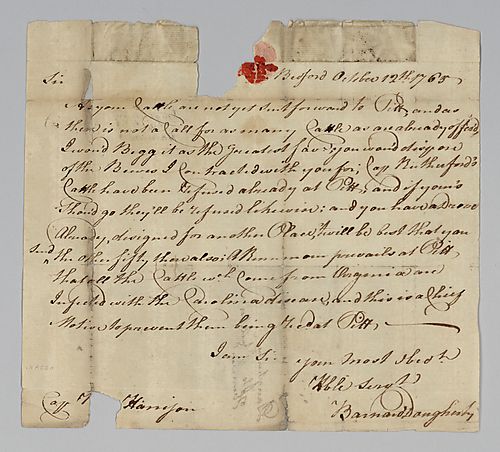 Bedford October 12th 1765
Sir
As your Cattle are not yet sent forward to Pitt, and as
there is not a Call for as many Cattle as are already offerd
I woud Begg it as the Greatest favr. you woud dispose
of the Beeves I Contracted with you for; Cap Rutherford's
Cattle have been refused already at Pitt, and if yours
Should go they'll be refused likewise; and you have a drove
Already, designed for another Place, twill be best that you
Send the other fifty there also; A Rumour prevails at Pitt
that all the Cattle wh. Come from Virginia are
Infected with the Carolina disease, and this is a Chief
Motive to prevent them being used at Pitt
I am Sir your most Obedt.
Hble Servt.
Cap Harrison
Barnard Dougherty